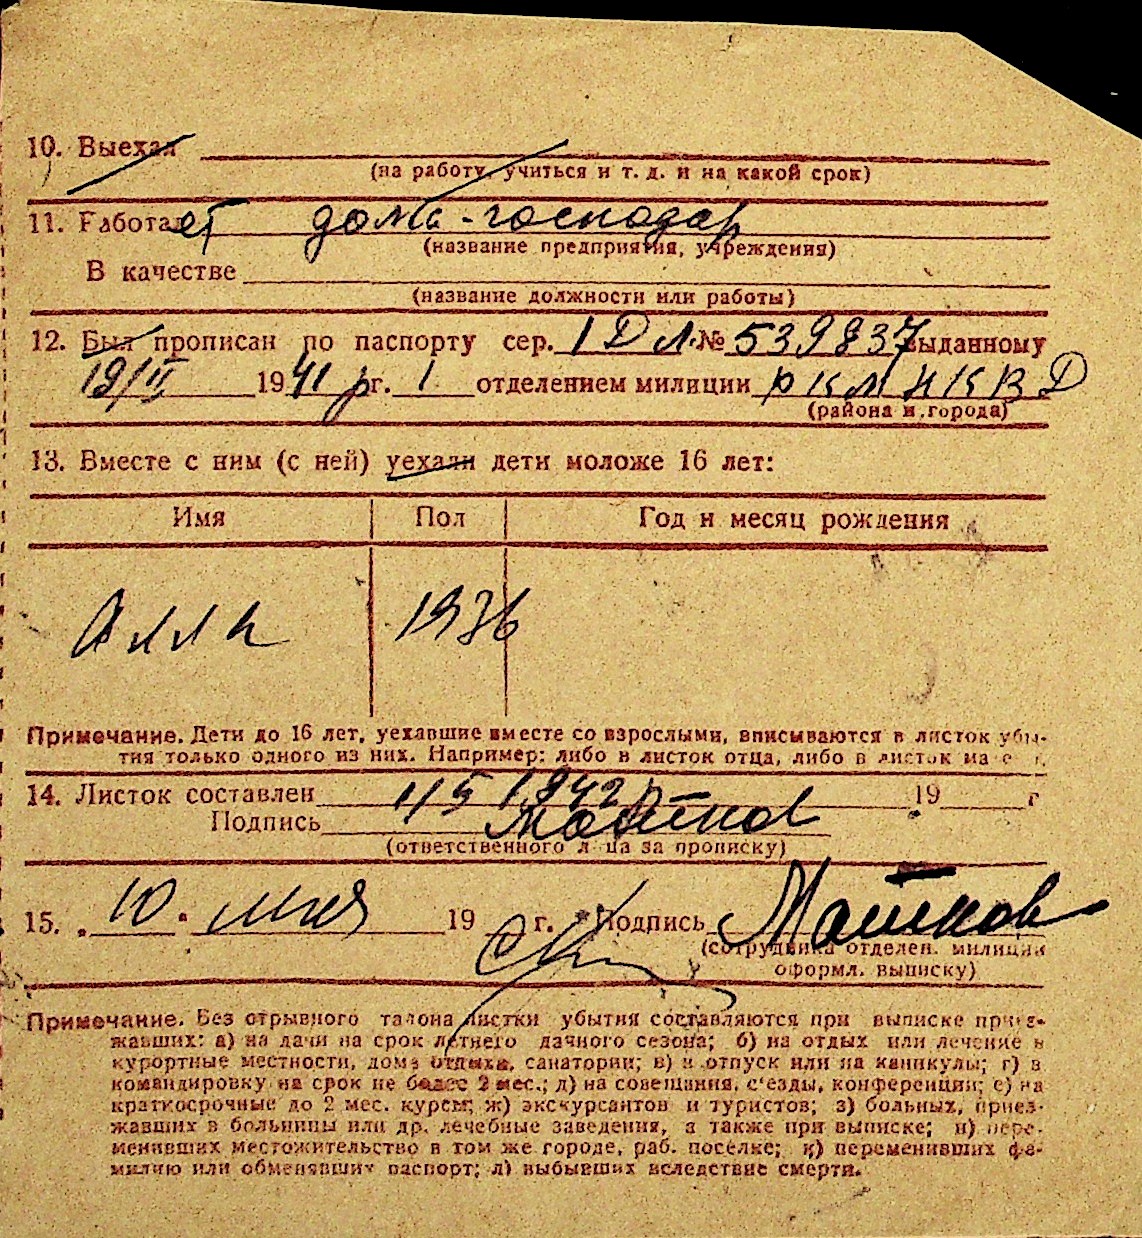 10. Выехал
(на работу, учиться и т. д. и на какой срок)
11. Работает дома-господар
(название предприятия, учреждения)
В качестве
(название должности или работы)
12. Был прописан по паспорту сер. I Д Л. № 539837 выданному
19/II 1941 р г. 1 отделением милиции РКМ НКВД
(района и города)
13. Вместе с ним (с ней) уехали дети моложе 16 лет:
Имя Пол Год и месяц рождения
Алла 1936
Примечание. Дети до 16 лет, уехавшие вместе со взрослыми, вписываются в листок убы-
тия только одного из них. Например: либо в листок отца, либо в листок
14. Листок составлен 1942 19 г
Подпись Машков
(ответственного лица за прописку)
15. 10. мая 19 г. Подпись Машков
(сотрудника отделен. милиции
оформл. выписку)
Примечание. Без отрывного талона листки убытия составляются при выписке приез-
жавших: а) на дачи на срок летнего дачного сезона; б) на отдых или лечение в
курортные местности, дома отдыха, санатории; в) в отпуск или на каникулы; г) в
командировку на срок не более 2 мес.; д) на совещания, с'езды, конференции; е) на
краткосрочные до 2 мес. курсы; ж) экскурсантов и туристов; з) больных, приез-
жавших в больницы или др. лечебные заведения, а также при выписке; и) пере-
менивших местожительство в том же городе, раб. поселке; к) переменивших фа-
милию или обменявших паспорт; л) выбывших вследствие смерти.